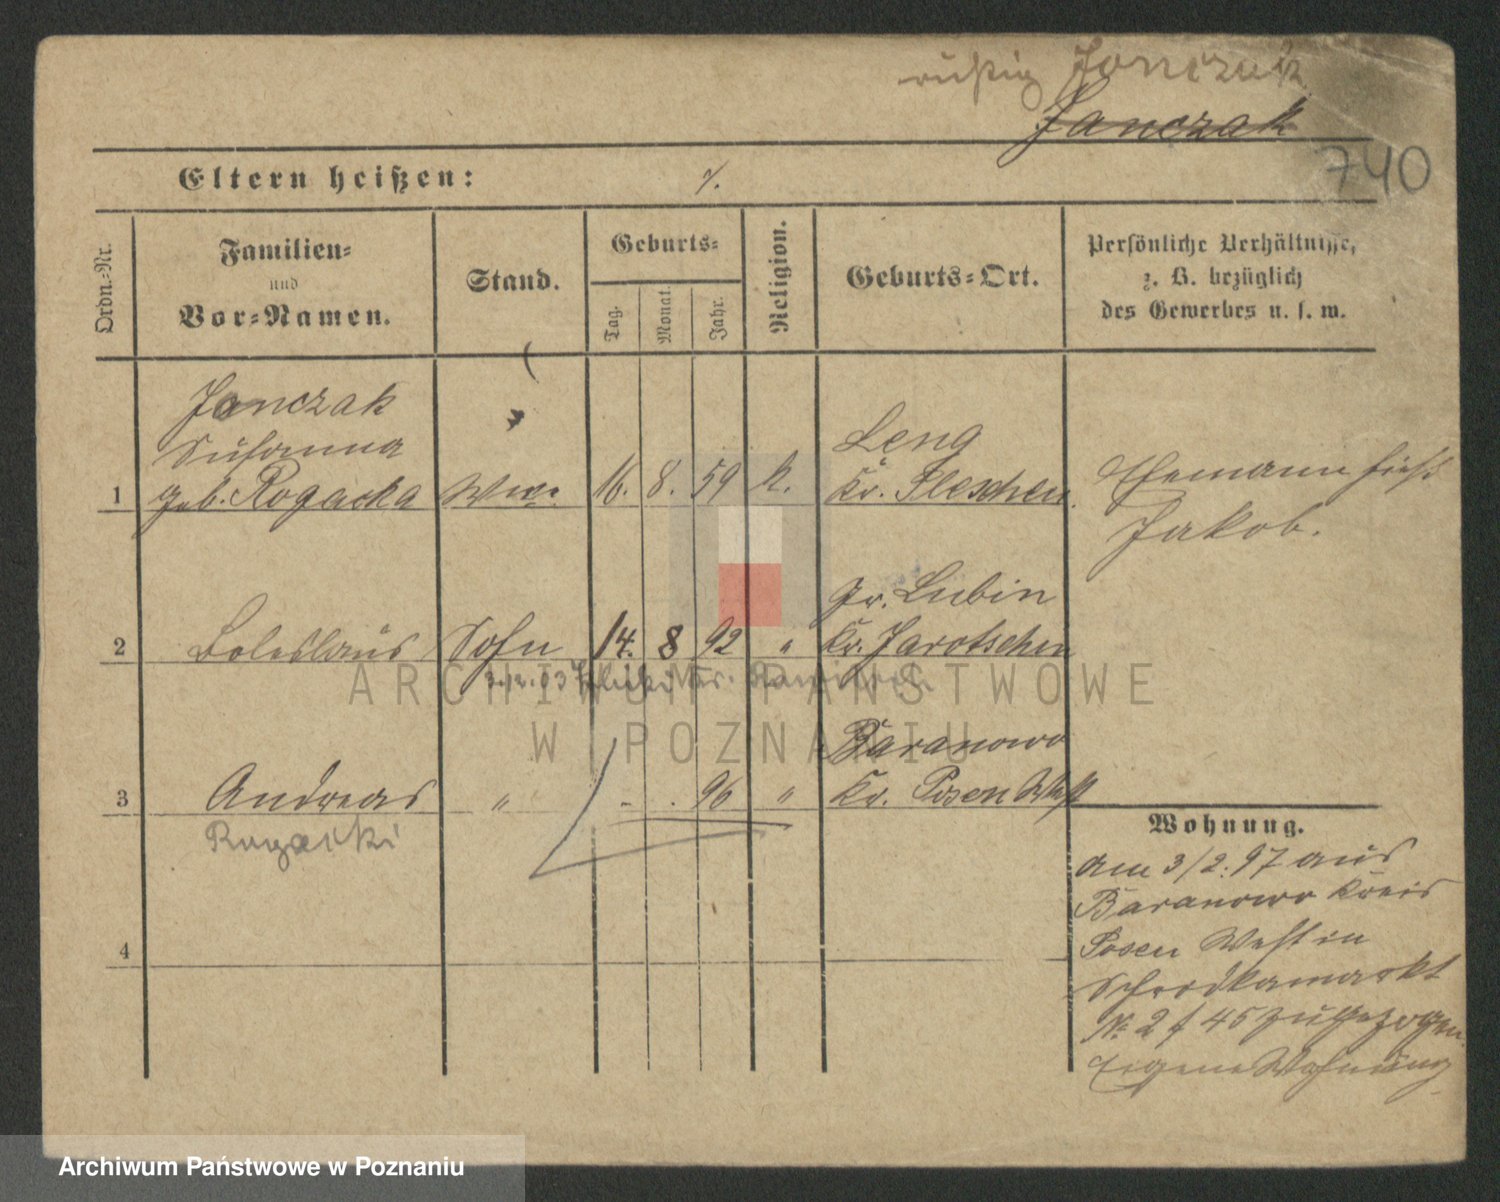 richtig Jonczak
Janczak
740
Eltern heißen: ⁒
Ordn.-Nr.
Familien-
und
Vor-Namen.
Stand.
Geburts-
Tag.
Monat.
Jahr.
Religion.
Geburts-Ort.
Persönliche Verhältnisse,
z. B. bezüglich
des Gewerbes u. s. w.
Jonczak
Susanna
1 geb. Rogacka Wwe. 16. 8. 59 k.
Leng
Kr. Pleschen.
Ehemann hieß
Jakob.
Gr. Lubin
2 Boleslaus Sohn 14. 8 92 " Kr. Jarotschen
Baranowo
3 Andreas " - . 96 " Kr. Posen West
Rogacki
4
Wohnung.
am 3/2. 97 aus
Baranowo Kreis
Posen West in
Schrodkamarkt
№ 2 f 45 zugezogen.
Eigene Wohnung
ARCHIWUM PAŃSTWOWE
W POZNANIU
Archiwum Państwowe w Poznaniu